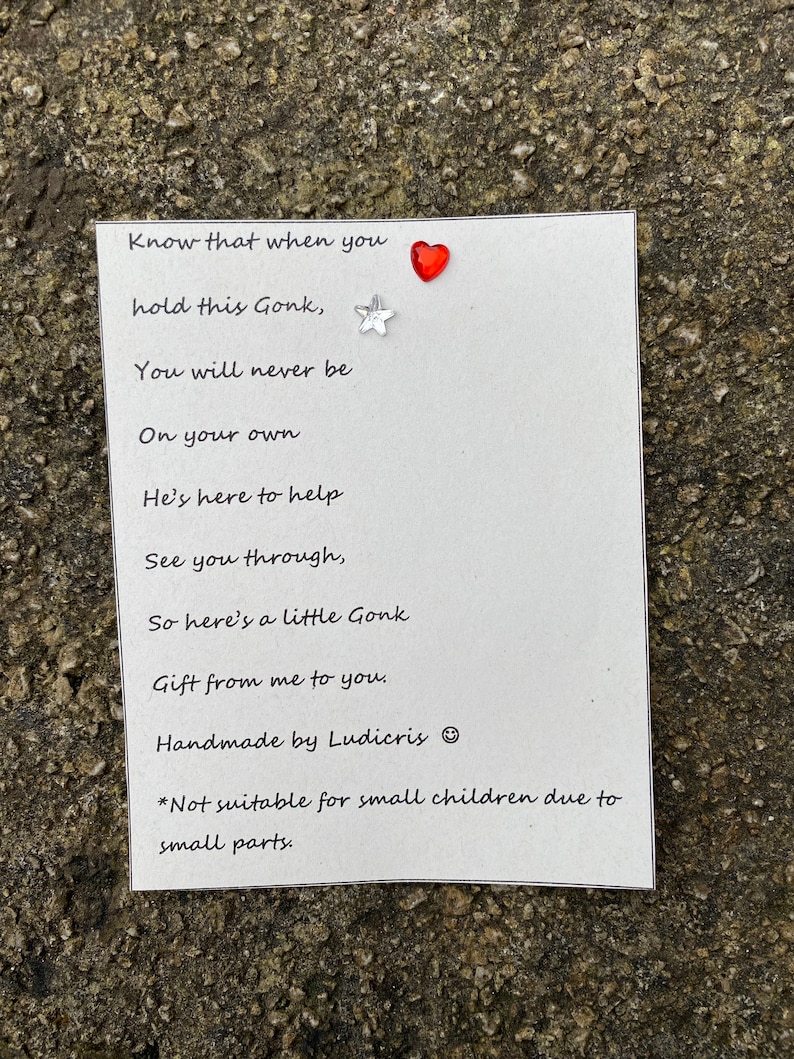 Know that when you
hold this Gonk,
You will never be
On your own
He's here to help
See you through,
So here's a little Gonk
Gift from me to you.
Handmade by Ludicris ☺
*Not suitable for small children due to
small parts.